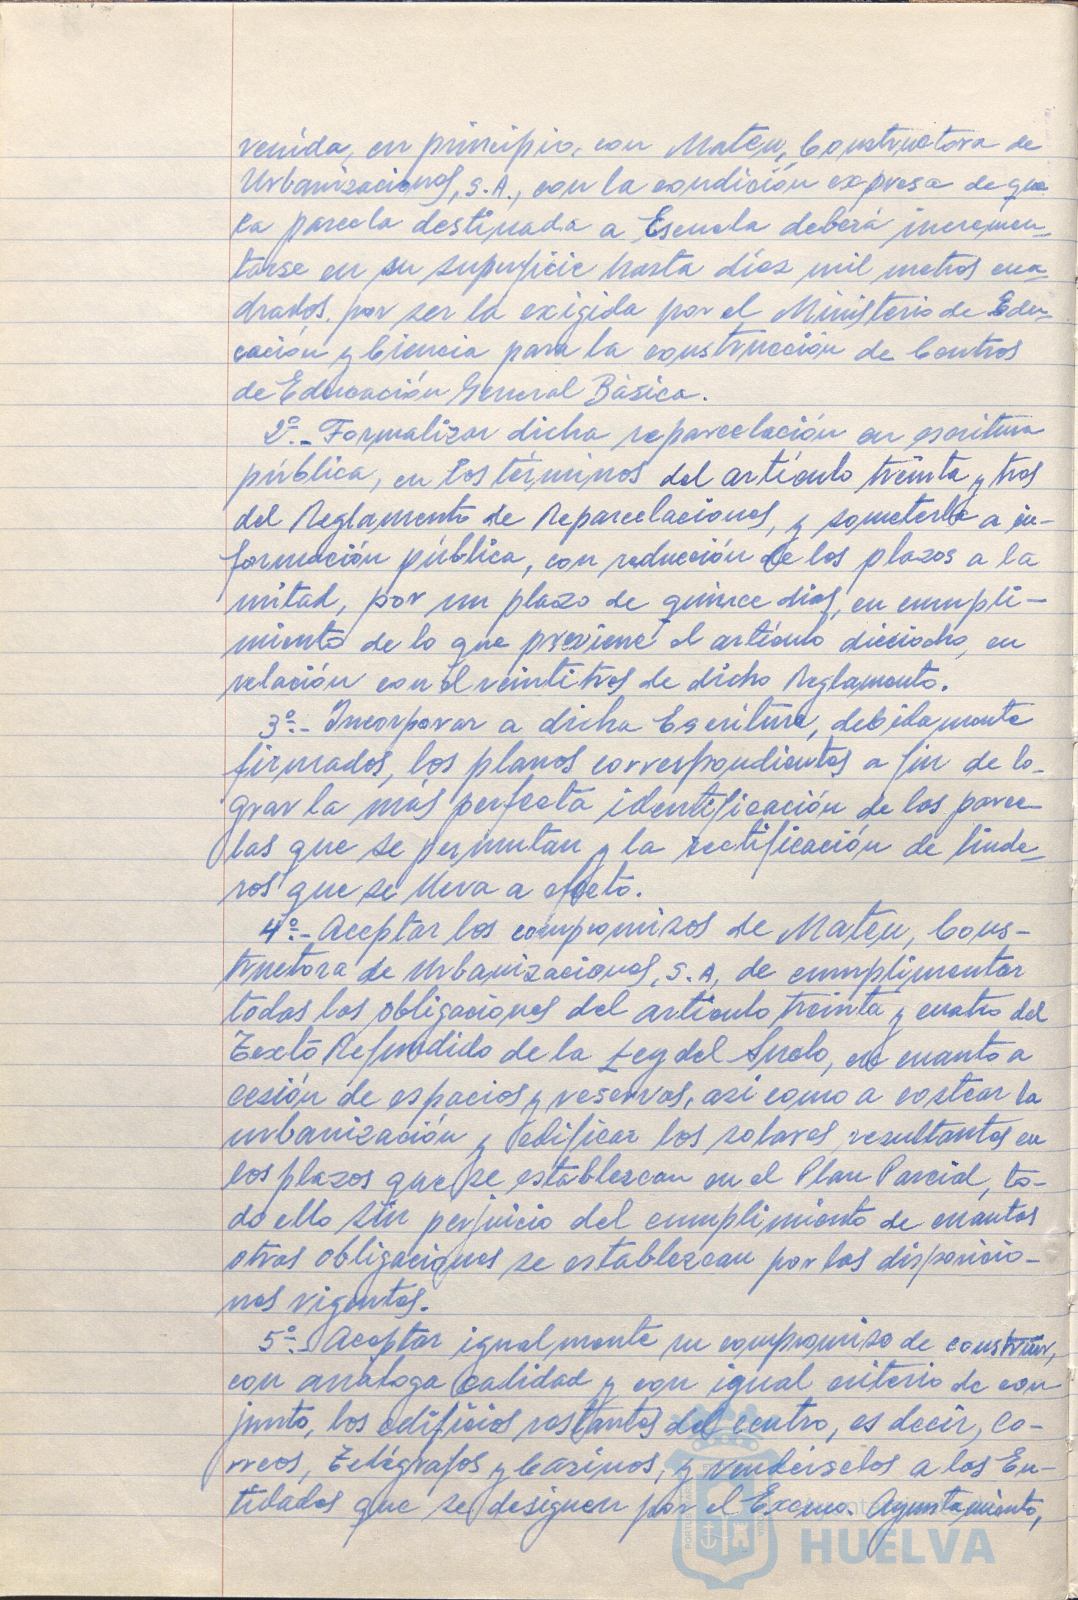 venida, en principio, con Mateu, Constructora de
Urbanizaciones, S.A., con la condición expresa de que
la parcela destinada a Escuela deberá incremen-
tarse en su superficie hasta diez mil metros cua-
drados, por ser la exigida por el Ministerio de Edu-
cación y Ciencia para la construcción de Centros
de Educación General Básica.
2º.- Formalizar dicha reparcelación en escritura
pública, en los términos del artículo treinta y tres
del Reglamento de Reparcelaciones, y someterla a in-
formación pública, con reducción de los plazos a la
mitad, por un plazo de quince días, en cumpli-
miento de lo que previene el artículo dieciocho, en
relación con el veintitres de dicho Reglamento.
3º.- Incorporar a dicha Escritura, debidamente
firmados, los planos correspondientes a fin de lo-
grar la más perfecta identificación de las parce-
las que se permutan y la rectificación de linde-
ros que se lleva a efecto.
4º.- Aceptar los compromisos de Mateu, Cons-
tructora de Urbanizaciones, S.A, de cumplimentar
todas las obligaciones del artículo treinta y cuatro del
Texto Refundido de la Ley del Suelo, en cuanto a
cesión de espacios y reservas, asi como a costear la
urbanización y edificar los solares resultantes en
los plazos que se establezcan en el Plan Parcial, to-
do ello sin perjuicio del cumplimiento de cuantas
otras obligaciones se establezcan por las disposicio-
nes vigentes.
5º.- Aceptar igualmente su compromiso de construir,
con análoga calidad y con igual criterio de con
junto, los edificios restantes del centro, es decir, Co-
rreos, Telégrafos y Casinos, y vendérselos a las En-
tidades que se designen por el Excmo. Ayuntamiento,
HUELVA